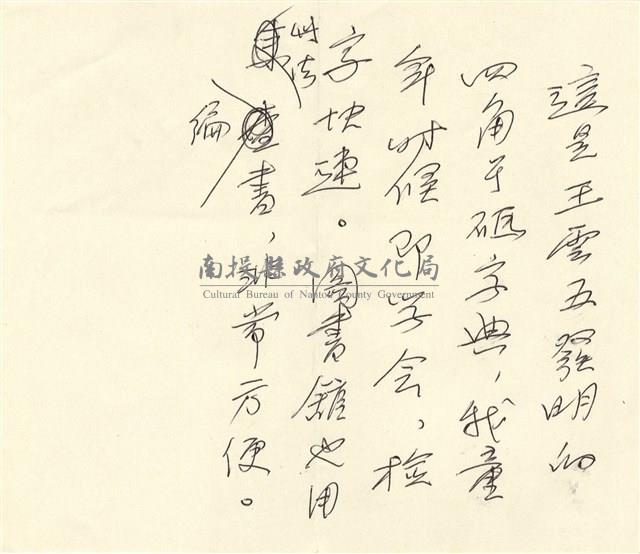 這是王雲五發明的
四角号碼字典，我童
年时候即学会，检
字快速。圖書館也用
此法
編書，非常方便。
南投縣政府文化局
Cultural Bureau of Nantou County Government